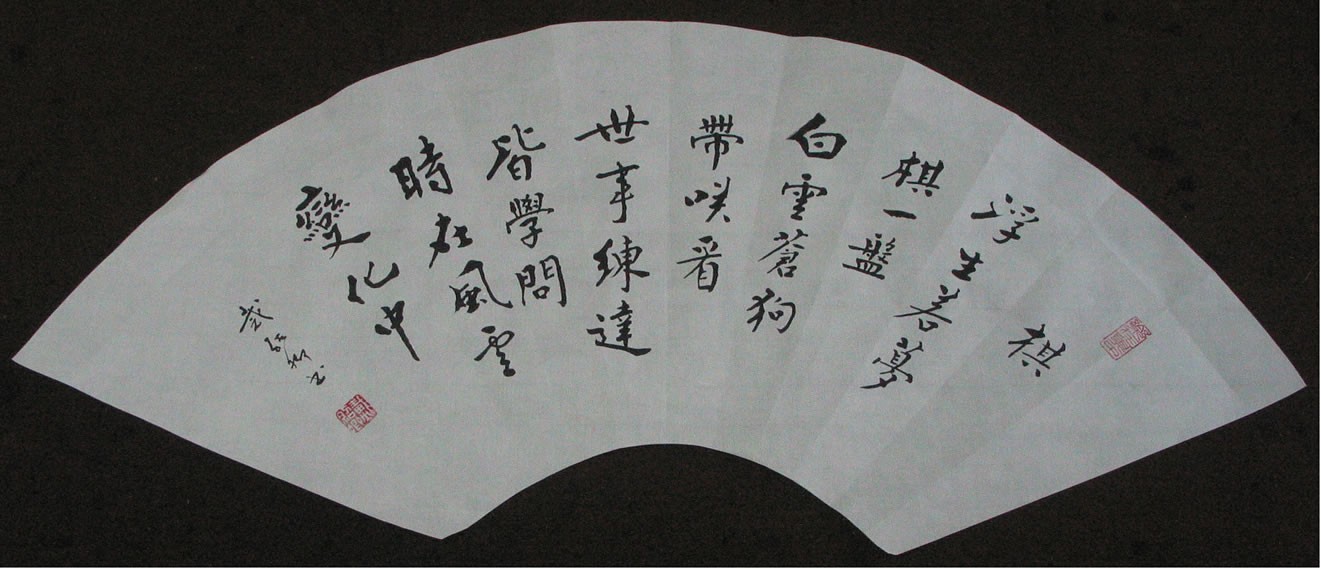 棋
浮生若夢
棋一盤
白雲蒼狗
帶咲看
世事練達
皆學問
時在風雲
變化中